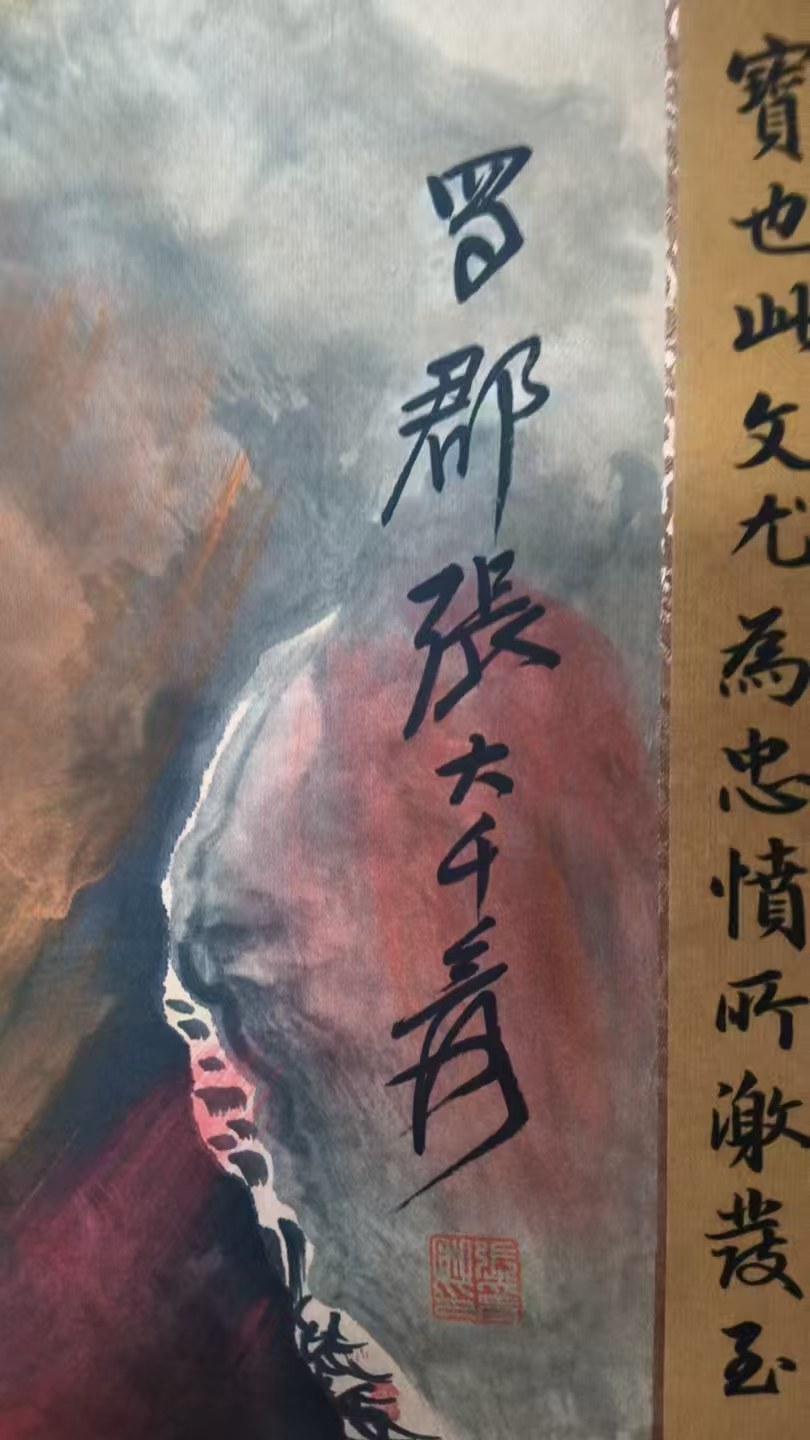 寶也此文尤為忠憤所激發至
蜀郡張大千爰